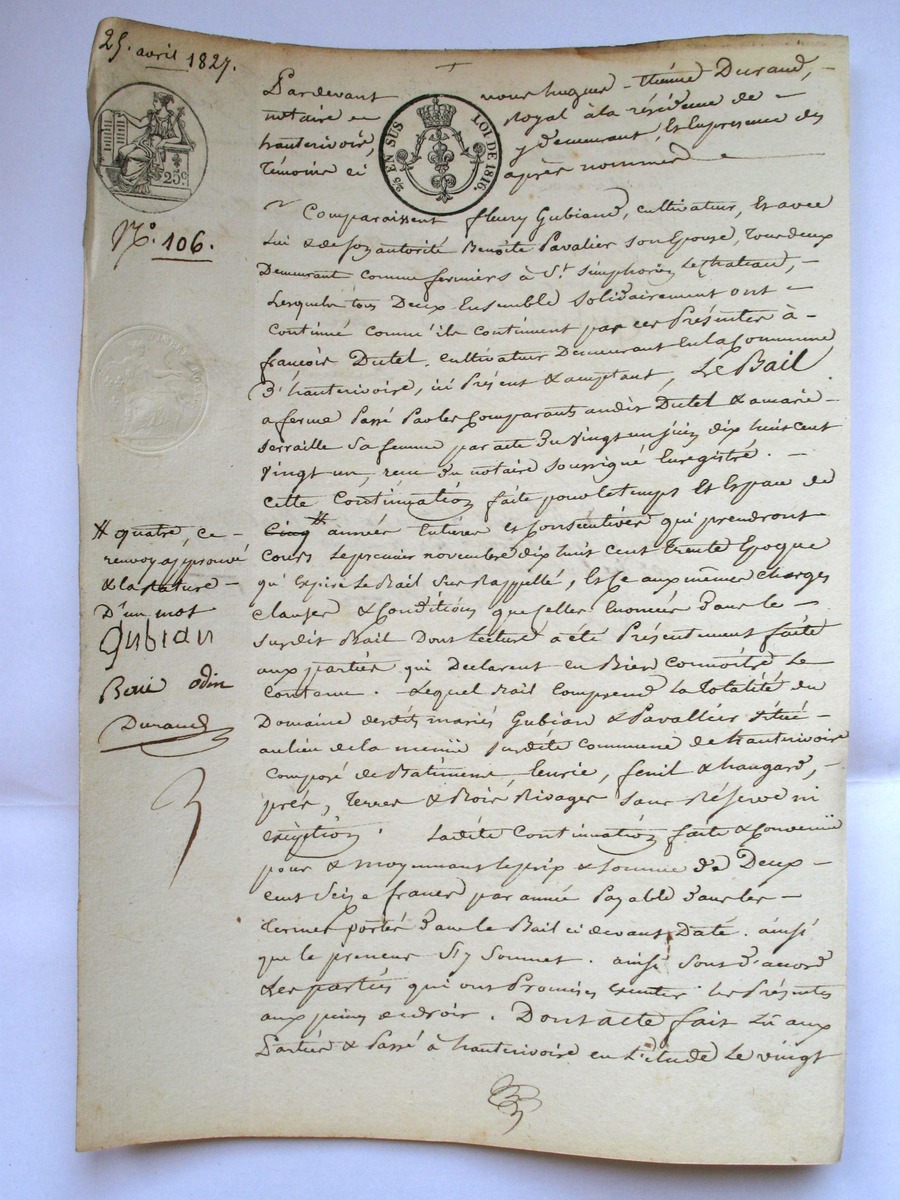 25. avril 1827.
Pardevant nous hugues-étienne Durand,
notaire royal à la résidence de
hauterivoire, y demeurant, et en presence des
témoins ci après nommés
EN SUS
LOI DE 1816.
25 c.
N.° 106.
Comparaissent fleury Gubiand, cultivateur, et avec
lui & de son autorité Benoite Pavalier son épouse, tous deux
demeurant comme fermiers à S.t simphorien le chateau,
lesquels tous deux ensemble solidairement ont
continué comme ils continuent par ces présentes à
françois Dutel, cultivateur demeurant en la commune
d'hauterivoire, ici présent & acceptant, Le Bail
a ferme passé par les comparants audit Dutel & a marie
serraille sa femme par acte du vingt un juin dix huit cent
vingt un, recu du notaire soussigné enregistré.
cette continuation faite pour le temps et espace de
cinq # années entieres et consécutives qui prendront
cours le premier novembre dix huit cent trente époque
qu'expire le Bail sus rappellé, et ce aux mêmes charges
clauses & conditions que celles énoncées dans le
susdit Bail dont lecture a été présentement faite
aux parties qui déclarent en bien connoitre le
contenu. Lequel Bail comprend la totalité du
Domaine desdits mariés Gubian & Pavallier situé
au lieu de la susdite commune de hauterivoire
composé de Batiments, fenil & hangard,
prés, terres & Bois sans réserve ni
exception. Ladite continuation faite & convenue
pour & moyennant le prix & somme de Deux
cent seize francs par année payable dans les
termes portés dans le Bail ci devant daté. ainsi
que le preneur s'y soumet. ainsi sont d'accord
les parties qui ont promis exécuter les présentes
aux peines de droit. Dont acte fait lu aux
parties & passé à hauterivoire en l'étude le vingt
# quatre, ce
renvoy approuvé
& la rature
D'un mot
Gubian
odin
Durand